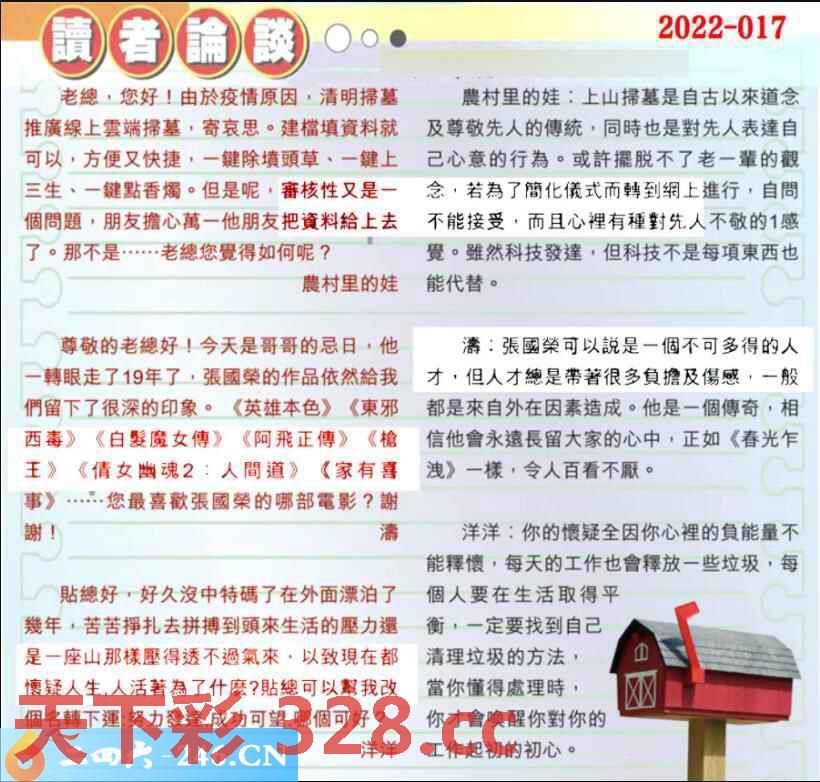 讀者論談
2022-017
老總，您好！由於疫情原因，清明掃墓
推廣線上雲端掃墓，寄哀思。建檔填資料就
可以，方便又快捷，一鍵除墳頭草、一鍵上
三生、一鍵點香燭。但是呢，審核性又是一
個問題，朋友擔心萬一他朋友把資料給上去
了。那不是……老總您覺得如何呢？
農村里的娃
尊敬的老總好！今天是哥哥的忌日，他
一轉眼走了19年了，張國榮的作品依然給我
們留下了很深的印象。《英雄本色》《東邪
西毒》《白髮魔女傳》《阿飛正傳》《槍
王》《倩女幽魂2：人間道》《家有喜
事》……您最喜歡張國榮的哪部電影？謝
謝！ 濤
貼總好，好久沒中特碼了在外面漂泊了
幾年，苦苦掙扎去拼搏到頭來生活的壓力還
是一座山那樣壓得透不過氣來，以致現在都
懷疑人生,人活著為了什麼?貼總可以幫我改
個名轉下運:努力發達,成功可望,哪個可好？
洋洋
農村里的娃：上山掃墓是自古以來道念
及尊敬先人的傳統，同時也是對先人表達自
己心意的行為。或許擺脫不了老一輩的觀
念，若為了簡化儀式而轉到網上進行，自問
不能接受，而且心裡有種對先人不敬的1感
覺。雖然科技發達，但科技不是每項東西也
能代替。
濤：張國榮可以說是一個不可多得的人
才，但人才總是帶著很多負擔及傷感，一般
都是來自外在因素造成。他是一個傳奇，相
信他會永遠長留大家的心中，正如《春光乍
洩》一樣，令人百看不厭。
洋洋：你的懷疑全因你心裡的負能量不
能釋懷，每天的工作也會釋放一些垃圾，每
個人要在生活取得平
衡，一定要找到自己
清理垃圾的方法，
當你懂得處理時，
你才會喚醒你對你的
工作起初的初心。
天下彩328.cc
二四六-246.CN